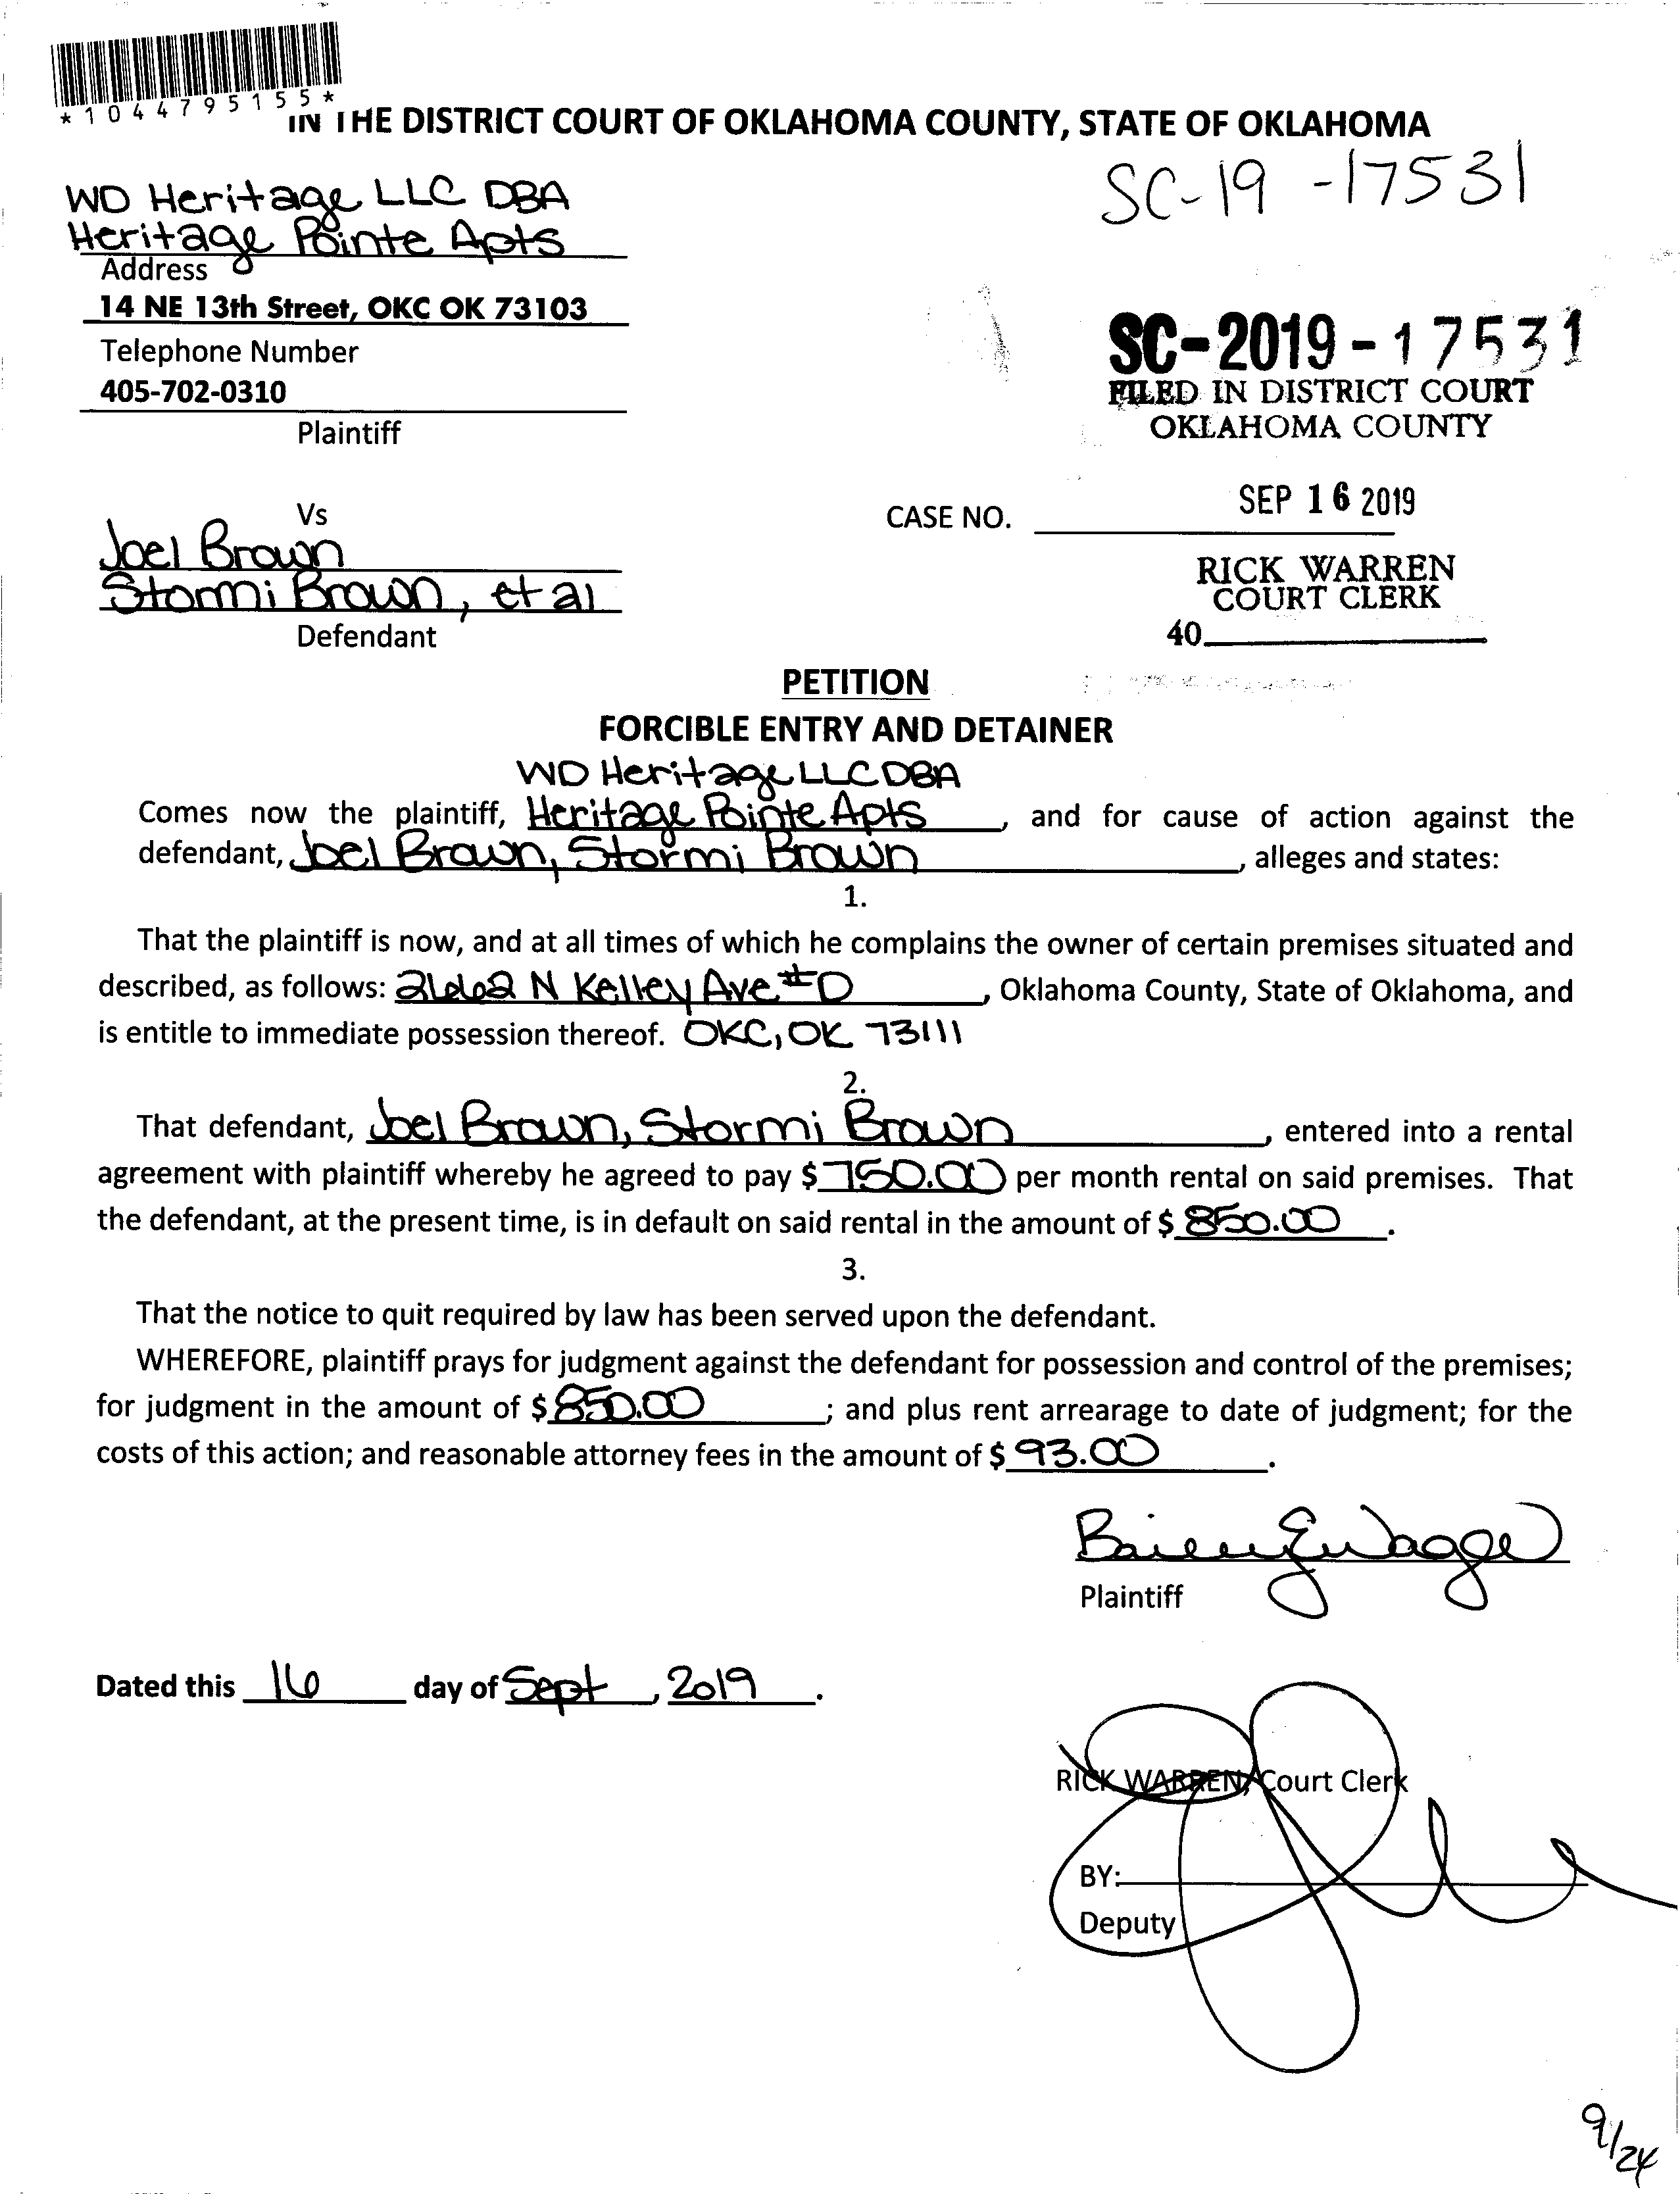 *1044795155*
IN THE DISTRICT COURT OF OKLAHOMA COUNTY, STATE OF OKLAHOMA
SC-19-17531
WD Heritage LLC DBA
Heritage Pointe Apts
Address
14 NE 13th Street, OKC OK 73103
Telephone Number
405-702-0310
Plaintiff
SC-2019-17531
FILED IN DISTRICT COURT
OKLAHOMA COUNTY
SEP 16 2019
RICK WARREN
COURT CLERK
40
Vs
CASE NO.
Joel Brown
Stormi Brown, et al
Defendant
PETITION
FORCIBLE ENTRY AND DETAINER
WD Heritage LLC DBA
Comes now the plaintiff, Heritage Pointe Apts, and for cause of action against the
defendant, Joel Brown, Stormi Brown, alleges and states:
1.
That the plaintiff is now, and at all times of which he complains the owner of certain premises situated and
described, as follows: 2662 N Kelley Ave #D, Oklahoma County, State of Oklahoma, and
is entitle to immediate possession thereof. OKC, OK 73111
2.
That defendant, Joel Brown, Stormi Brown, entered into a rental
agreement with plaintiff whereby he agreed to pay $ 750.00 per month rental on said premises. That
the defendant, at the present time, is in default on said rental in the amount of $ 850.00.
3.
That the notice to quit required by law has been served upon the defendant.
WHEREFORE, plaintiff prays for judgment against the defendant for possession and control of the premises;
for judgment in the amount of $ 850.00; and plus rent arrearage to date of judgment; for the
costs of this action; and reasonable attorney fees in the amount of $ 93.00.
Plaintiff
Dated this 16 day of Sept, 2019.
RICK WARREN, Court Clerk
BY:
Deputy
9/24